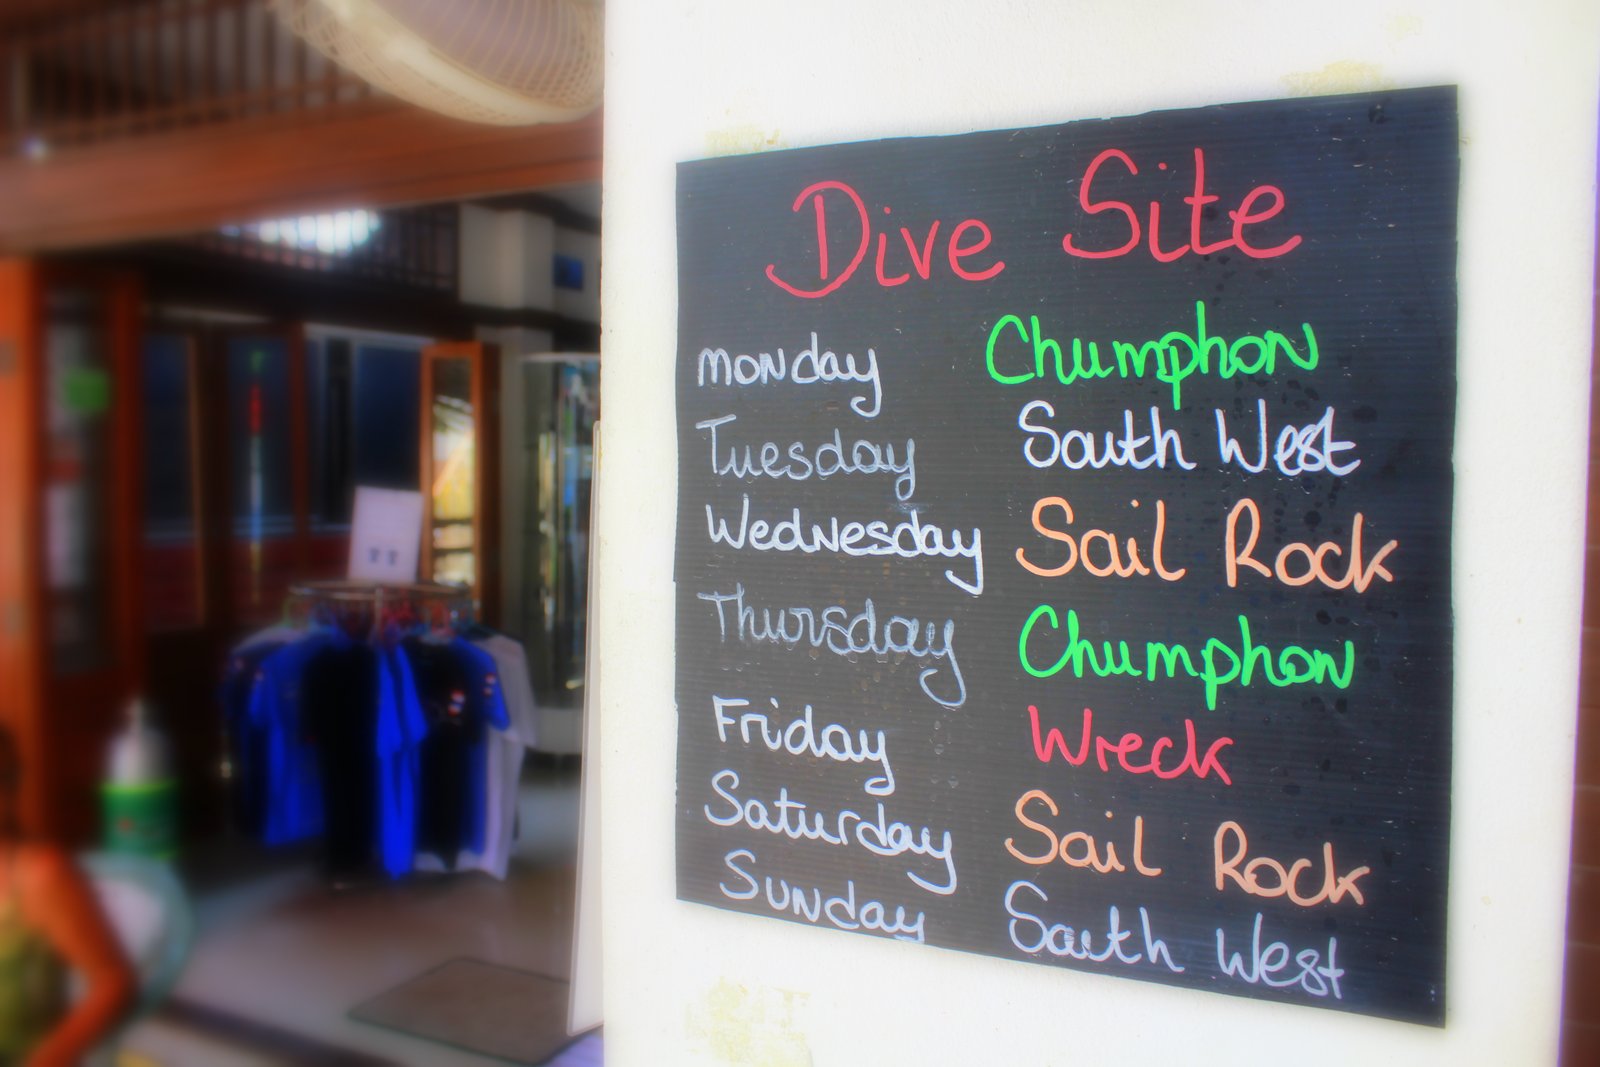 Dive Site
monday Chumphon
Tuesday South West
Wednesday Sail Rock
Thursday Chumphon
Friday Wreck
Saturday Sail Rock
Sunday South West